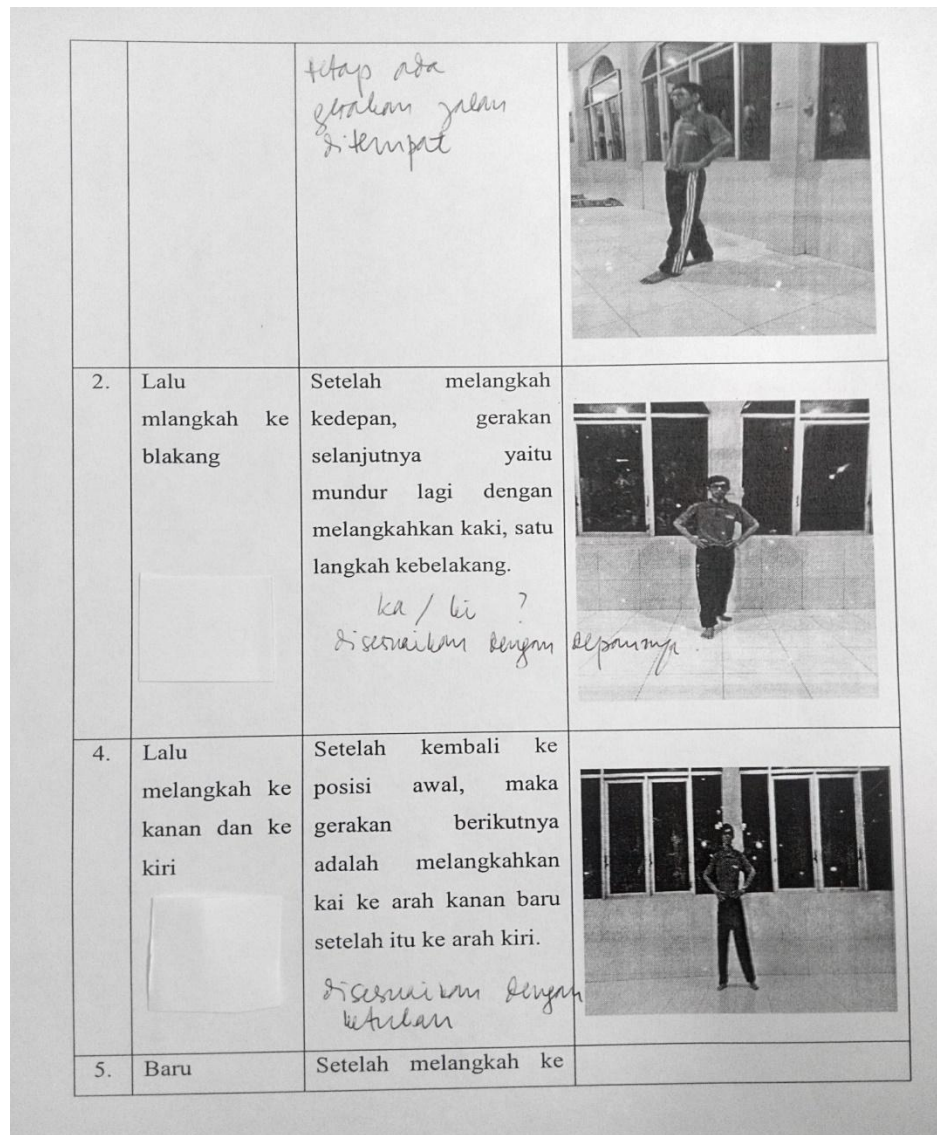 tetap ada
gerakan jalan
ditempat
2.
Lalu
mlangkah ke
blakang
Setelah melangkah
kedepan, gerakan
selanjutnya yaitu
mundur lagi dengan
melangkahkan kaki, satu
langkah kebelakang.
ka / ki ?
disesuaikan dengan depannya.
4.
Lalu
melangkah ke
kanan dan ke
kiri
Setelah kembali ke
posisi awal, maka
gerakan berikutnya
adalah melangkahkan
kai ke arah kanan baru
setelah itu ke arah kiri.
disesuaikan dengan
5.
Baru
Setelah melangkah ke